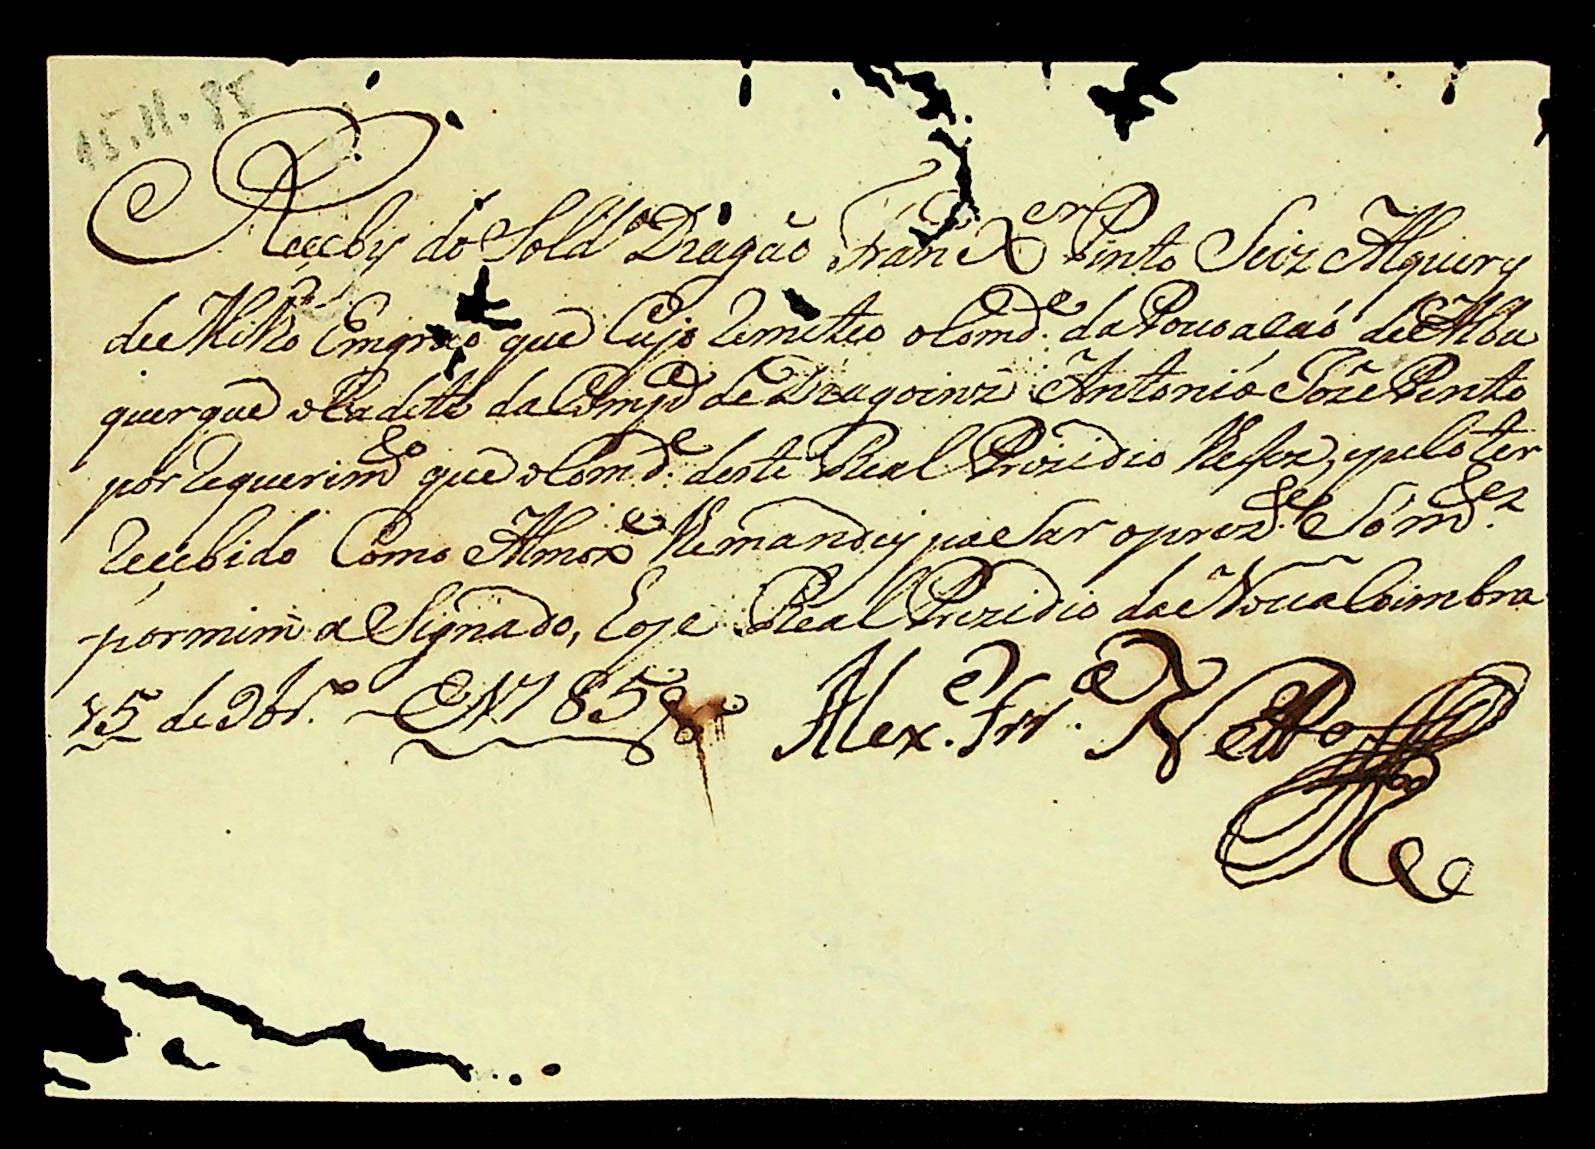 15.11.85
Recebij do Sold.o Dragão Fran.co X.er Pinto Seiz Alquiery
de Milho Emgrao que Cujo Remeteo o Com.de da Povoacaó de Albu
querque o Cadete da Comp.a de Dragoinz Antonio Joze Pinto
por Requerim.to que o Com.de deste Real Prezidio Me fez, e pelo ter
Recebido Como Almox.e Mandey paSar o prez.te Sóm.te
por mim aSignado, Eoje Real Prezidio da Nova Coimbra
15 de 9br.o E 1785
Alex.e Frr.a Netto